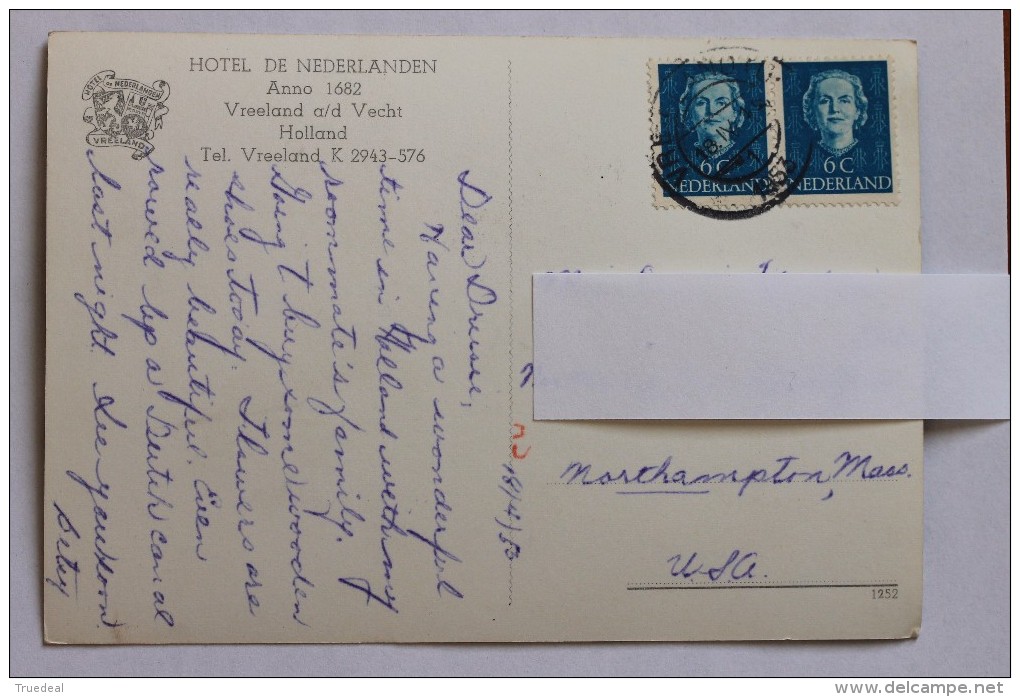 HOTEL DE NEDERLANDEN
Anno 1682
Vreeland a/d Vecht
Holland
Tel. Vreeland K 2943-576
HOTEL DE NEDERLANDEN
VREELAND
Dear Drusie,
Having a wonderful
time in Holland with my
roommate's family.
Going t buy some wooden
shoes today. Flowers are
really beautiful. Even
rowed up a Dutch canal
last night. See you soon.
Betsy
18/4/53
6C
NEDERLAND
6C
NEDERLAND
1953
Northampton, Mass.
USA.
1252
Truedeal
delcampe.net